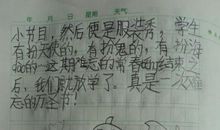 年 月 日 星期 天气
小节目,然后便是服装秀,学生
有扮天使的,有扮君的,有扮海
的一这期难忘的常春的结束之
后,我们就放学了。真是一次难
忘的万圣节!